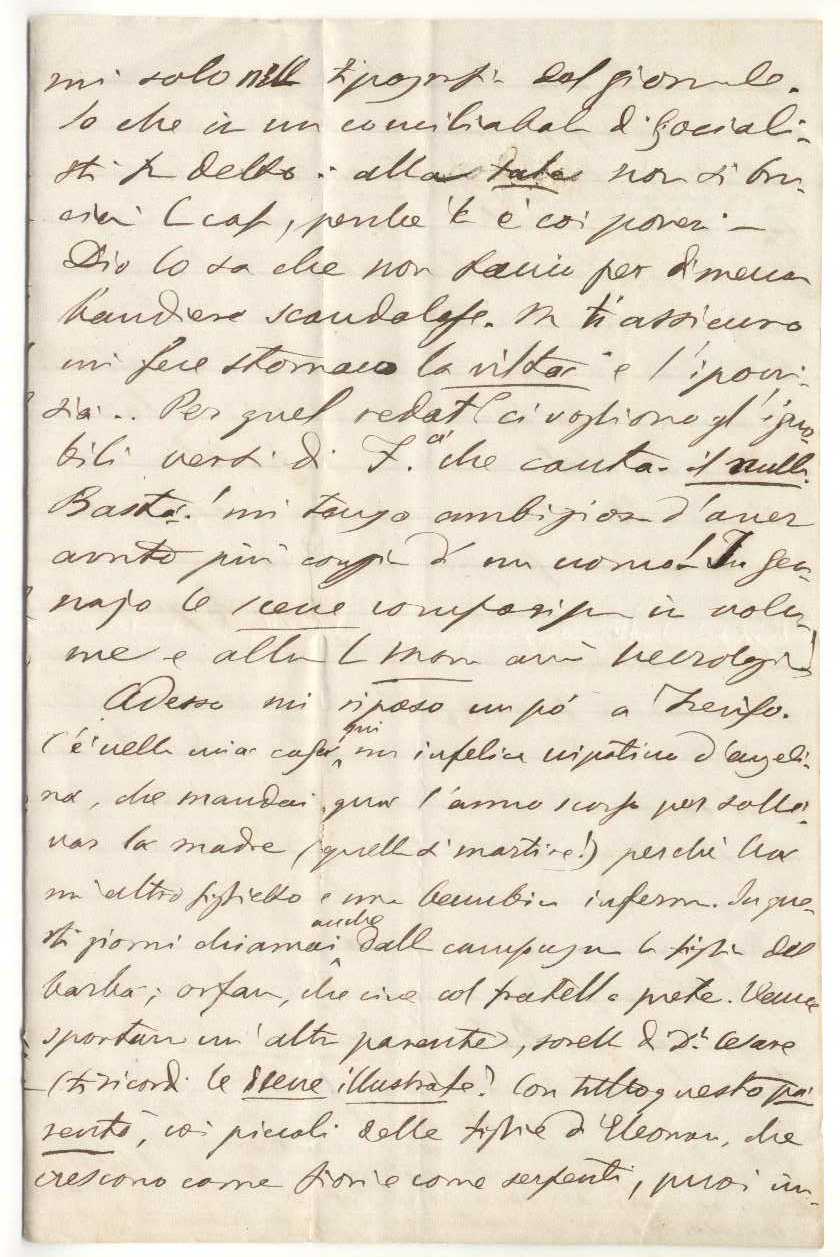 mi solo nella tipografia del giornale.
So che in un conciliabolo di Sociali-
sti fu detto: alla tale non si bru-
cierà la casa, perchè là è coi poveri —
Dio lo sa che non scrivo per dimenar
bandiere scandalose. Ma ti assicuro
mi fece stomaco la viltà e l'ipocri-
sia.. Per quel redat ci vogliono gl'igno-
bili versi di che canta il nulla.
Basta! mi tengo ambiziosa d'aver
avuto più coraggio d'un uomo! In gen-
najo le scene compariranno in volu-
me e allora la avrà necrologia!
Adesso mi riposo un pó a Treviso.
C'è nella mia casa, qui un infelice nipotino d'angeli-
na, che mandai qua l'anno scorso per solle-
var la madre (quella sì martire!) perchè ha
un altro figlietto e una bambina inferma. In que-
sti giorni chiamai anche dalla campagna la figlia del
barba; orfana, che vive col fratello prete. Venne
un'altra parente, sorella di Dr. Cesare
(ti ricordi le scene illustrate? Con tutto questo pa-
rentò, coi piccoli delle figlie d'Eleonora, che
crescono come fiori e come serpenti, puoi im-